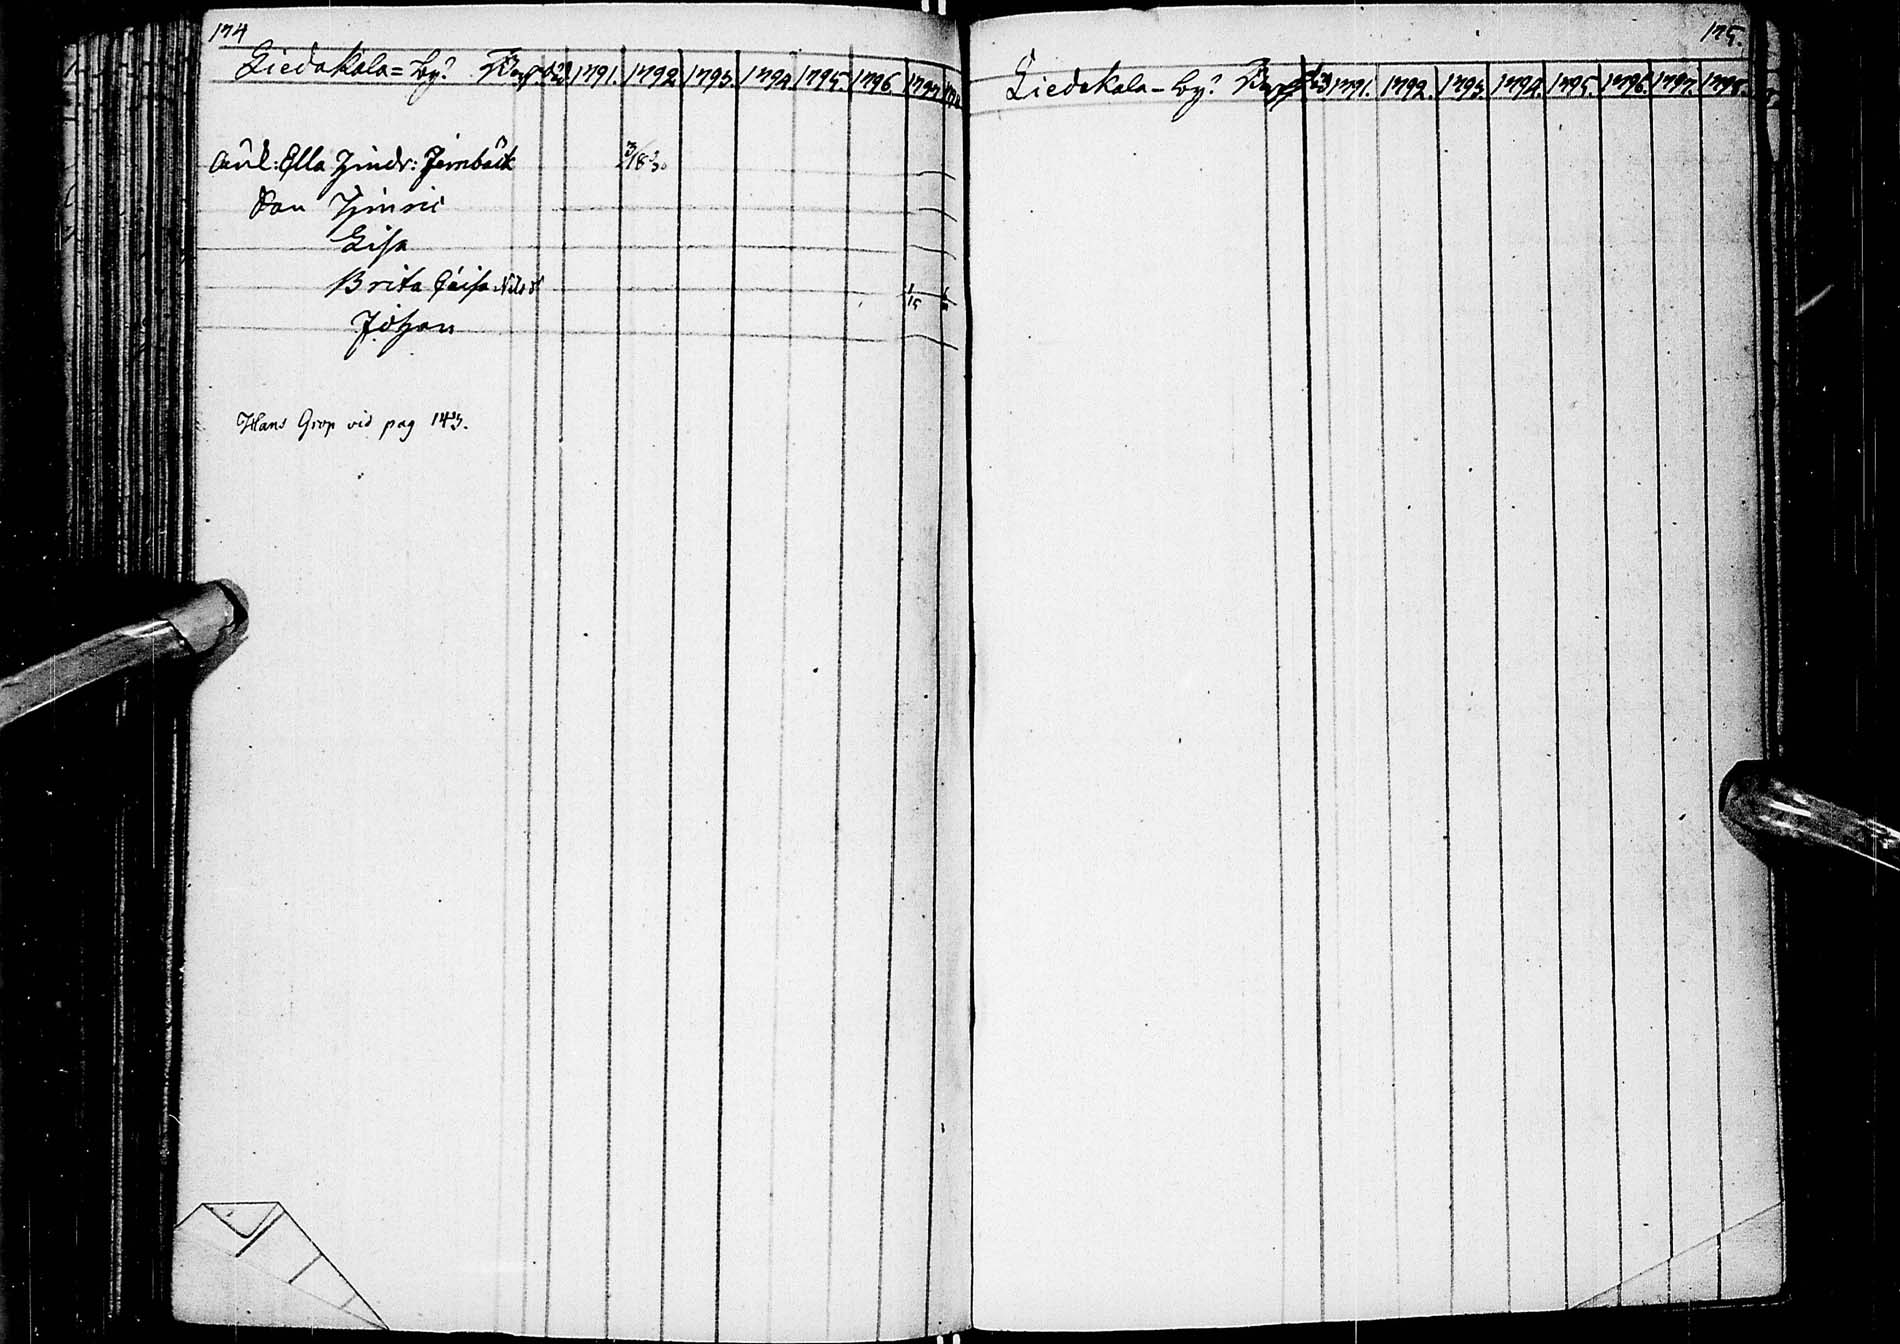 174
Liedakala = by? 1791. 1792 1793. 1794. 1795 1796. 1797
Ella Hindr: Jernbäck
Son Hinric
Lisa
Brita Caisa Nils dr 1/15
Johan
Hans Grop vid pag 143.
175.
Liedakala - by? 1791. 1792. 1793. 1794. 1795. 1796. 1797. 1798.